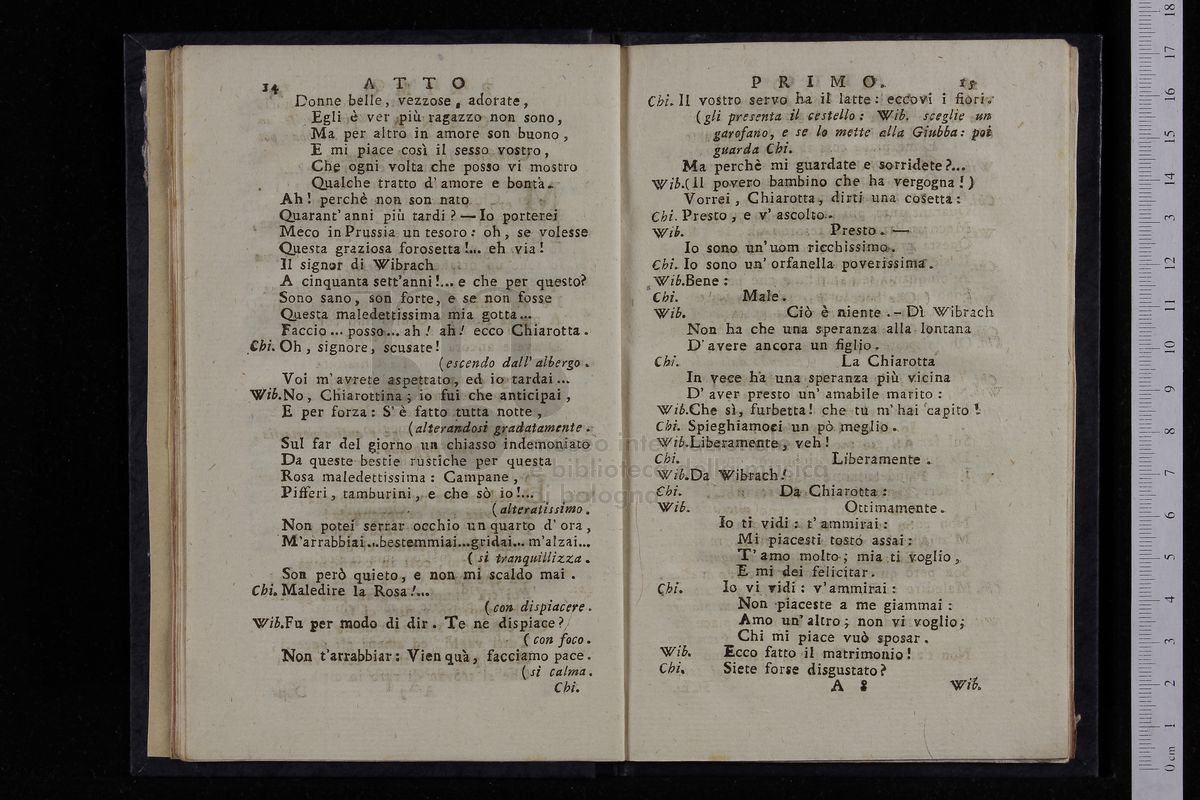 14 ATTO
Donne belle, vezzose, adorate,
Egli è ver più ragazzo non sono,
Ma per altro in amore son buono,
E mi piace così il sesso vostro,
Che ogni volta che posso vi mostro
Qualche tratto d'amore e bontà.
Ah! perchè non son nato
Quarant'anni più tardi? — Io porterei
Meco in Prussia un tesoro: oh, se volesse
Questa graziosa forosetta!... eh via!
Il signor di Wibrach
A cinquanta sett'anni!... e che per questo?
Sono sano, son forte, e se non fosse
Questa maledettissima mia gotta...
Faccio... posso... ah! ah! ecco Chiarotta.
Chi. Oh, signore, scusate!
(escendo dall' albergo.
Voi m'avrete aspettato, ed io tardai...
Wib. No, Chiarottina; io fui che anticipai,
E per forza: S'è fatto tutta notte,
(alterandosi gradatamente.
Sul far del giorno un chiasso indemoniato
Da queste bestie rustiche per questa
Rosa maledettissima: Campane,
Pifferi, tamburini, e che sò io!...
(alteratissimo.
Non potei serrar occhio un quarto d'ora,
M'arrabbiai...bestemmiai...gridai... m'alzai...
(si tranquillizza.
Son però quieto, e non mi scaldo mai.
Chi. Maledire la Rosa!...
(con dispiacere.
Wib. Fu per modo di dir. Te ne dispiace?
(con foco.
Non t'arrabbiar: Vien quà, facciamo pace.
(si calma.
Chi.
PRIMO. 15
Chi. Il vostro servo ha il latte: eccovi i fiori.
(gli presenta il cestello: Wib. sceglie un
garofano, e se lo mette alla Giubba: poi
guarda Chi.
Ma perchè mi guardate e sorridete?...
Wib. (Il povero bambino che ha vergogna!)
Vorrei, Chiarotta, dirti una cosetta:
Chi. Presto, e v'ascolto.
Wib. Presto. —
Io sono un'uom ricchissimo.
Chi. Io sono un' orfanella poverissima.
Wib. Bene:
Chi. Male.
Wib. Ciò è niente. - Dì Wibrach
Non ha che una speranza alla lontana
D'avere ancora un figlio.
Chi. La Chiarotta
In vece ha una speranza più vicina
D'aver presto un' amabile marito:
Wib. Che sì, furbetta! che tu m'hai capito!
Chi. Spieghiamoci un pò meglio.
Wib. Liberamente, veh!
Chi. Liberamente.
Wib. Da Wibrach!
Chi. Da Chiarotta:
Wib. Ottimamente.
Io ti vidi: t'ammirai:
Mi piacesti tosto assai:
T'amo molto; mia ti voglio,
E mi dei felicitar.
Chi. Io vi vidi: v'ammirai:
Non piaceste a me giammai:
Amo un'altro; non vi voglio;
Chi mi piace vuò sposar.
Wib. Ecco fatto il matrimonio!
Chi. Siete forse disgustato?
A 8 Wib.